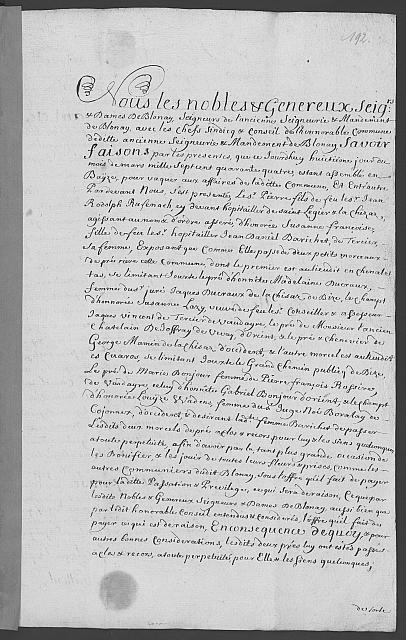 192.
Nous les nobles & Genereux Seigrs
& Dames De Blonay, Seigneurs de l'ancienne Seigneurie & Mandement
de Blonay, avec les Chefs Sindicq & Conseil de l'honnorable Commune
de dette ancienne Seigneurie & Mandement de Blonay, Savoir
faisons par les presentes, que ce Jourdhuy huictieme jour du
mois de mars mille sept cent quarante quatre, estans assemblé en
pour vaquer aux affaires de laditte Commune, Et Entr'autre
Pardevant Nous, s'est presenté, Les Pierre fils de feu les Jean
Rodolph hospitailler de Saint Legier & la Chiesaz,
agissant au nom & d'ordre d'honorée Susanne françoise,
fille de feu les hopitailler Jean Daniel Barichet de Tercier,
sa femme, Exposant que Comme Elle passe de deux petits morceaux
de pré rière cette Commune dont le premier est au lieu dit en Chenalet-
tas, se limitant Jouxte le pré d'honnête Madelaine Ducraux,
femme du juré Jaques Ducraux de la Chiesaz de Bize, le Champt
d'honnorée Susanne Lary, veuve de feu les Conseiller & assesseur
Jaques Vincent de Tercier de Vaudayre, le pré de Monsieur l'ancien
Chatelain De Joffrey de Vevay, d'Orient, & le pré & Chenevier de
George Mamin de la Chiesaz d'occident, & l'autre morcel est au lieu dit
es Cuaros, se limitant Jouxte le Grand Chemin publicq de Bize,
Le pré de Marie Bonjour femme de Pierre françois
de Vaudayre, celuy d'honnête Gabriel Bonjour d'orient, & le Champt
d'honorée Louyze femme du Sr Juge Noé Baralay de
d'occident, & desirant ladte femme Barichet de passer
Lesdits deux morcels de prés actes & recors pour luy & les siens quelconques
a toute perpetuité, afin d'avoir par là tant plus grande occasion de
les Bonifier & les jouir de toutes leurs fleurs & prises, comme les
autres Communiers dudit Blonay, Sous l'offre qu'il fait de payer
pour ladite Passation & Privilege, ce qui sera de raison, Ce que par
lesdits Nobles & Genereux Seigneurs & Dames De Blonay, aussi bien que
par ledit honorable Conseil entendu & consideré, l'offre qu'il fait de
payer ce qui est de raison, En consequence de quoy, & pour
autres bonnes Considerations, lesdits deux prés luy ont estés passés
actes & recors, a toute perpetuité pour Elle & les siens quelconques,
de sorte